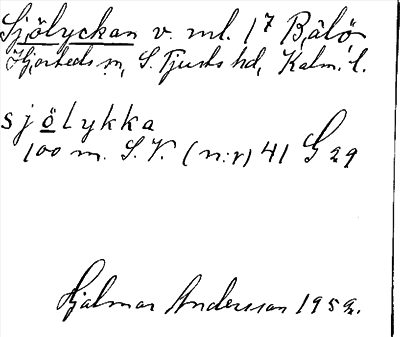 Sjölyckan v. ml. 1⁷ Bälö,
Hjorteds sn, S. Tjusts hd, Kalm. l.
sjölykka
100 m. S.V. (n:r) 41 G 29
Hjalmar Andersson 1952.